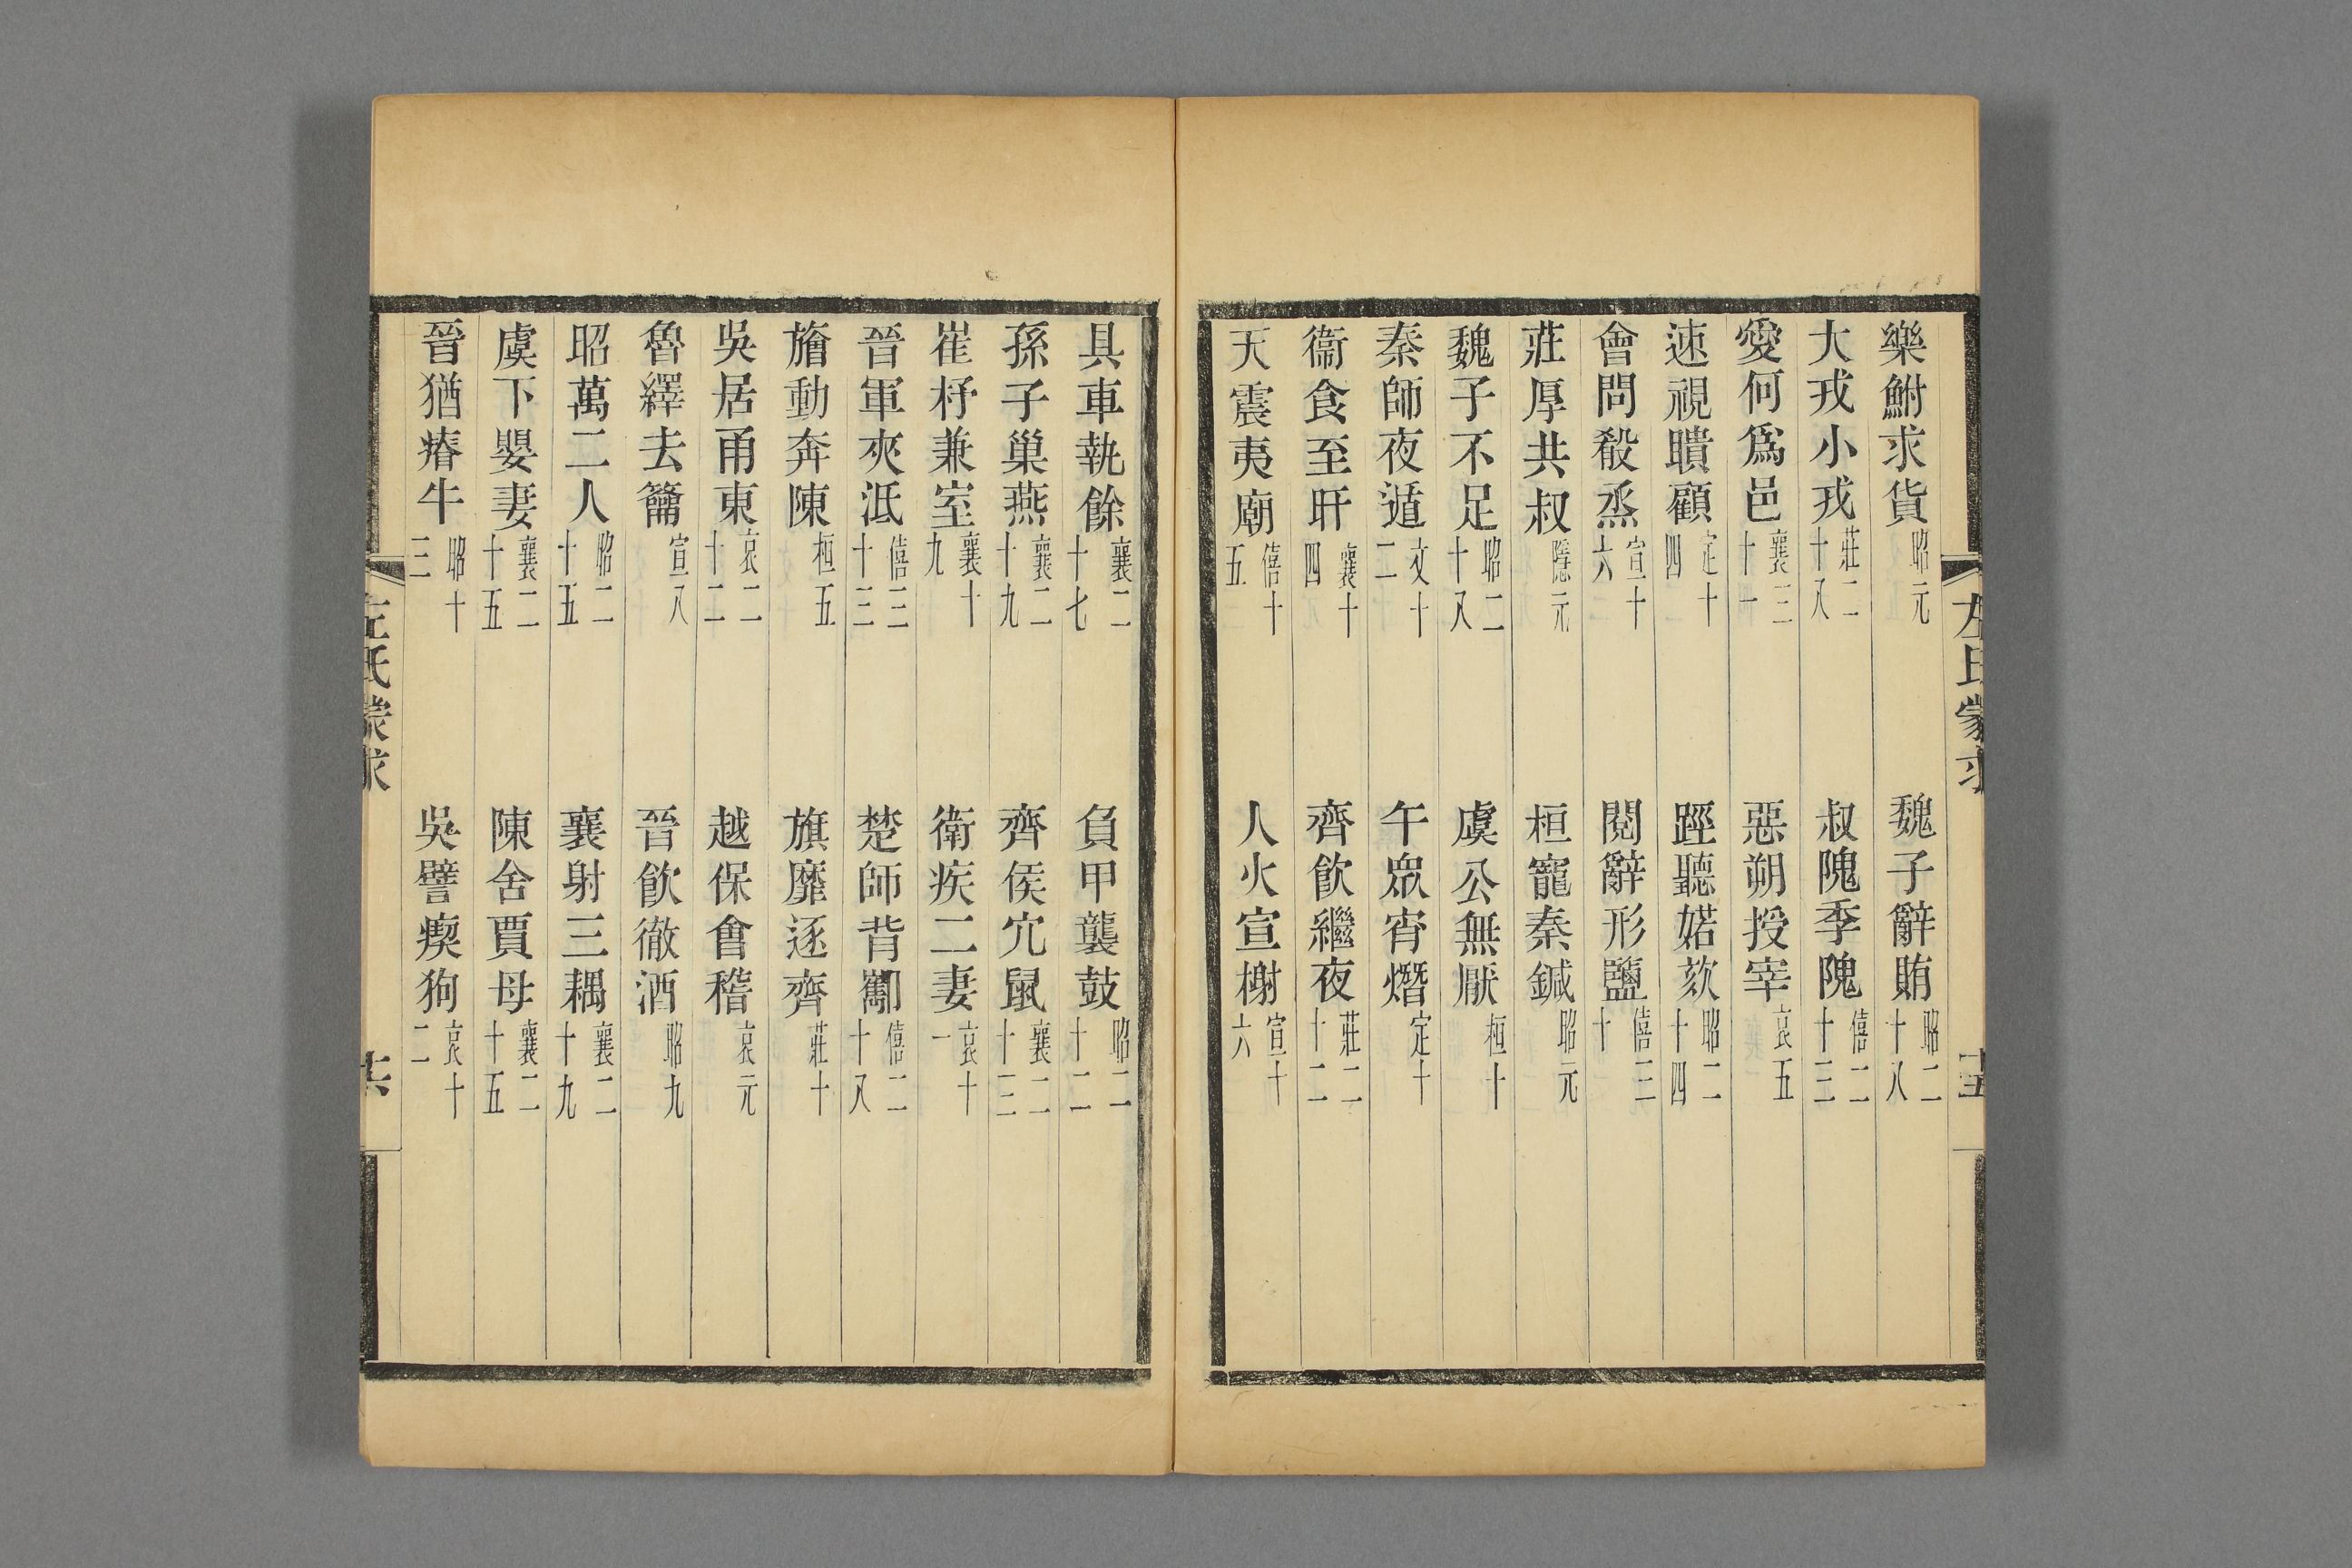 樂鮒求貨 昭元 魏子辭賄 昭二十八
大戎小戎 莊二十八 叔隗季隗 僖二十三
愛何爲邑 襄三十一 惡朔授宰 哀五
速視瞶顧 定十四 踁聽婼欬 昭二十四
會問殽烝 宣十六 閱辭形鹽 僖三十
莊厚共叔 隱元 桓寵秦鍼 昭元
魏子不足 昭二十八 虞公無厭 桓十
秦師夜遁 文十二 午眾宵熸 定十
衞食至旰 襄十四 齊飮繼夜 莊二十二
天震夷廟 僖十五 人火宣榭 宣十六
左氏蒙求
十五
具車執餘 襄二十七 負甲襲鼓 昭二十二
孫子巢燕 襄二十九 齊侯穴鼠 襄二十三
崔杼兼室 襄十九 衛疾二妻 哀十一
晉軍夾泜 僖三十三 楚師背酅 僖二十八
旝動奔陳 桓五 旗靡逐齊 莊十
吳居甬東 哀二十二 越保會稽 哀元
魯繹去籥 宣八 晉飮徹酒 昭九
昭萬二人 昭二十五 襄射三耦 襄二十九
虞下嬰妻 襄二十五 陳舍賈母 襄二十五
晉猶瘠牛 昭十三 吳譬瘈狗 哀十二
左氏蒙求
十六